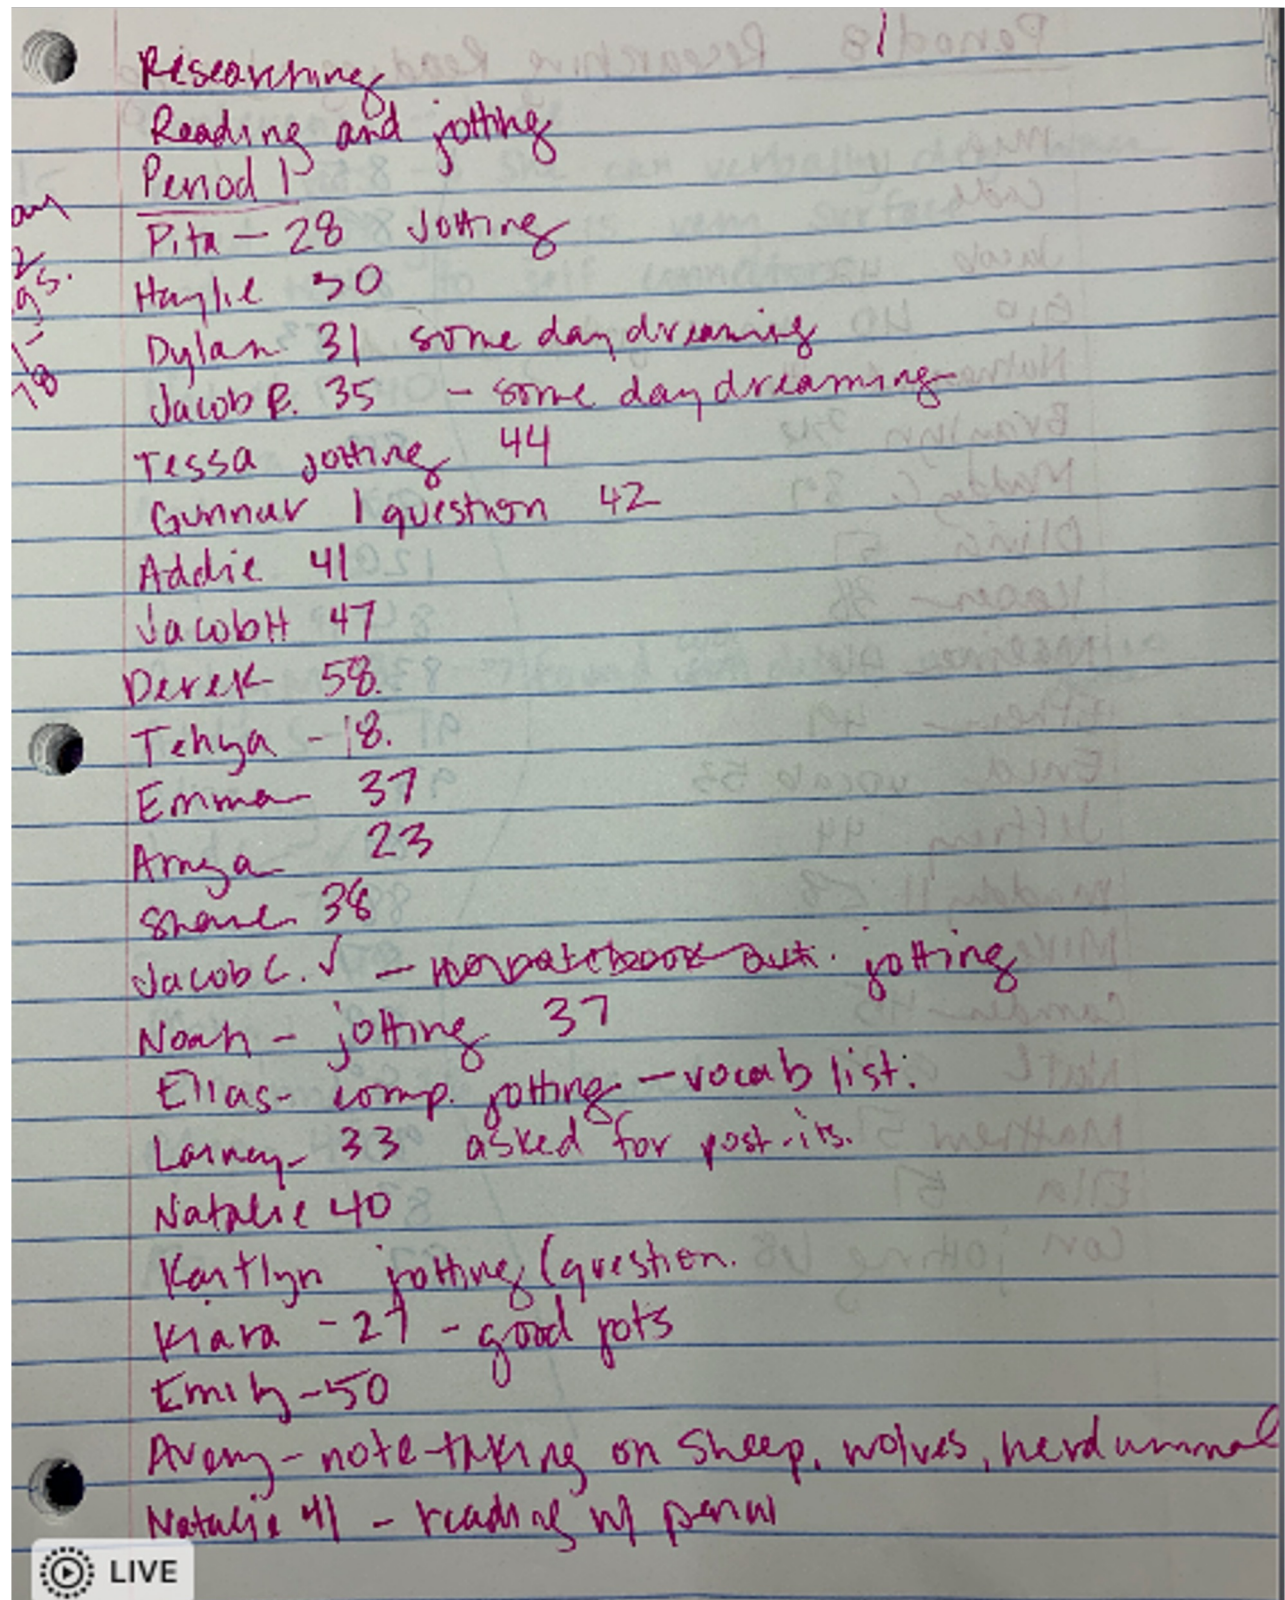 Researching
Reading and jotting
Period 1
Pita - 28 Jotting
Haylie 30
Dylan 31 some daydreaming
Jacob B. 35 - some daydreaming
Tessa jotting 44
Gunnar 1 question 42
Addie 41
Jacob H 47
Derek 58.
Tehya - 18.
Emma 37
Amya 23
Shane 38
Jacob C. ✓ - no notebook out. jotting
Noah - jotting 37
Elias - comp. jotting - vocab list.
Lainey - 33 asked for post-its.
Natalie 40
Kaitlyn jotting (question.
Kiara - 27 - good jots
Emily - 50
Avery - note-taking on sheep, wolves, herd animal
Natalie 41 - reading w/ pencil
LIVE